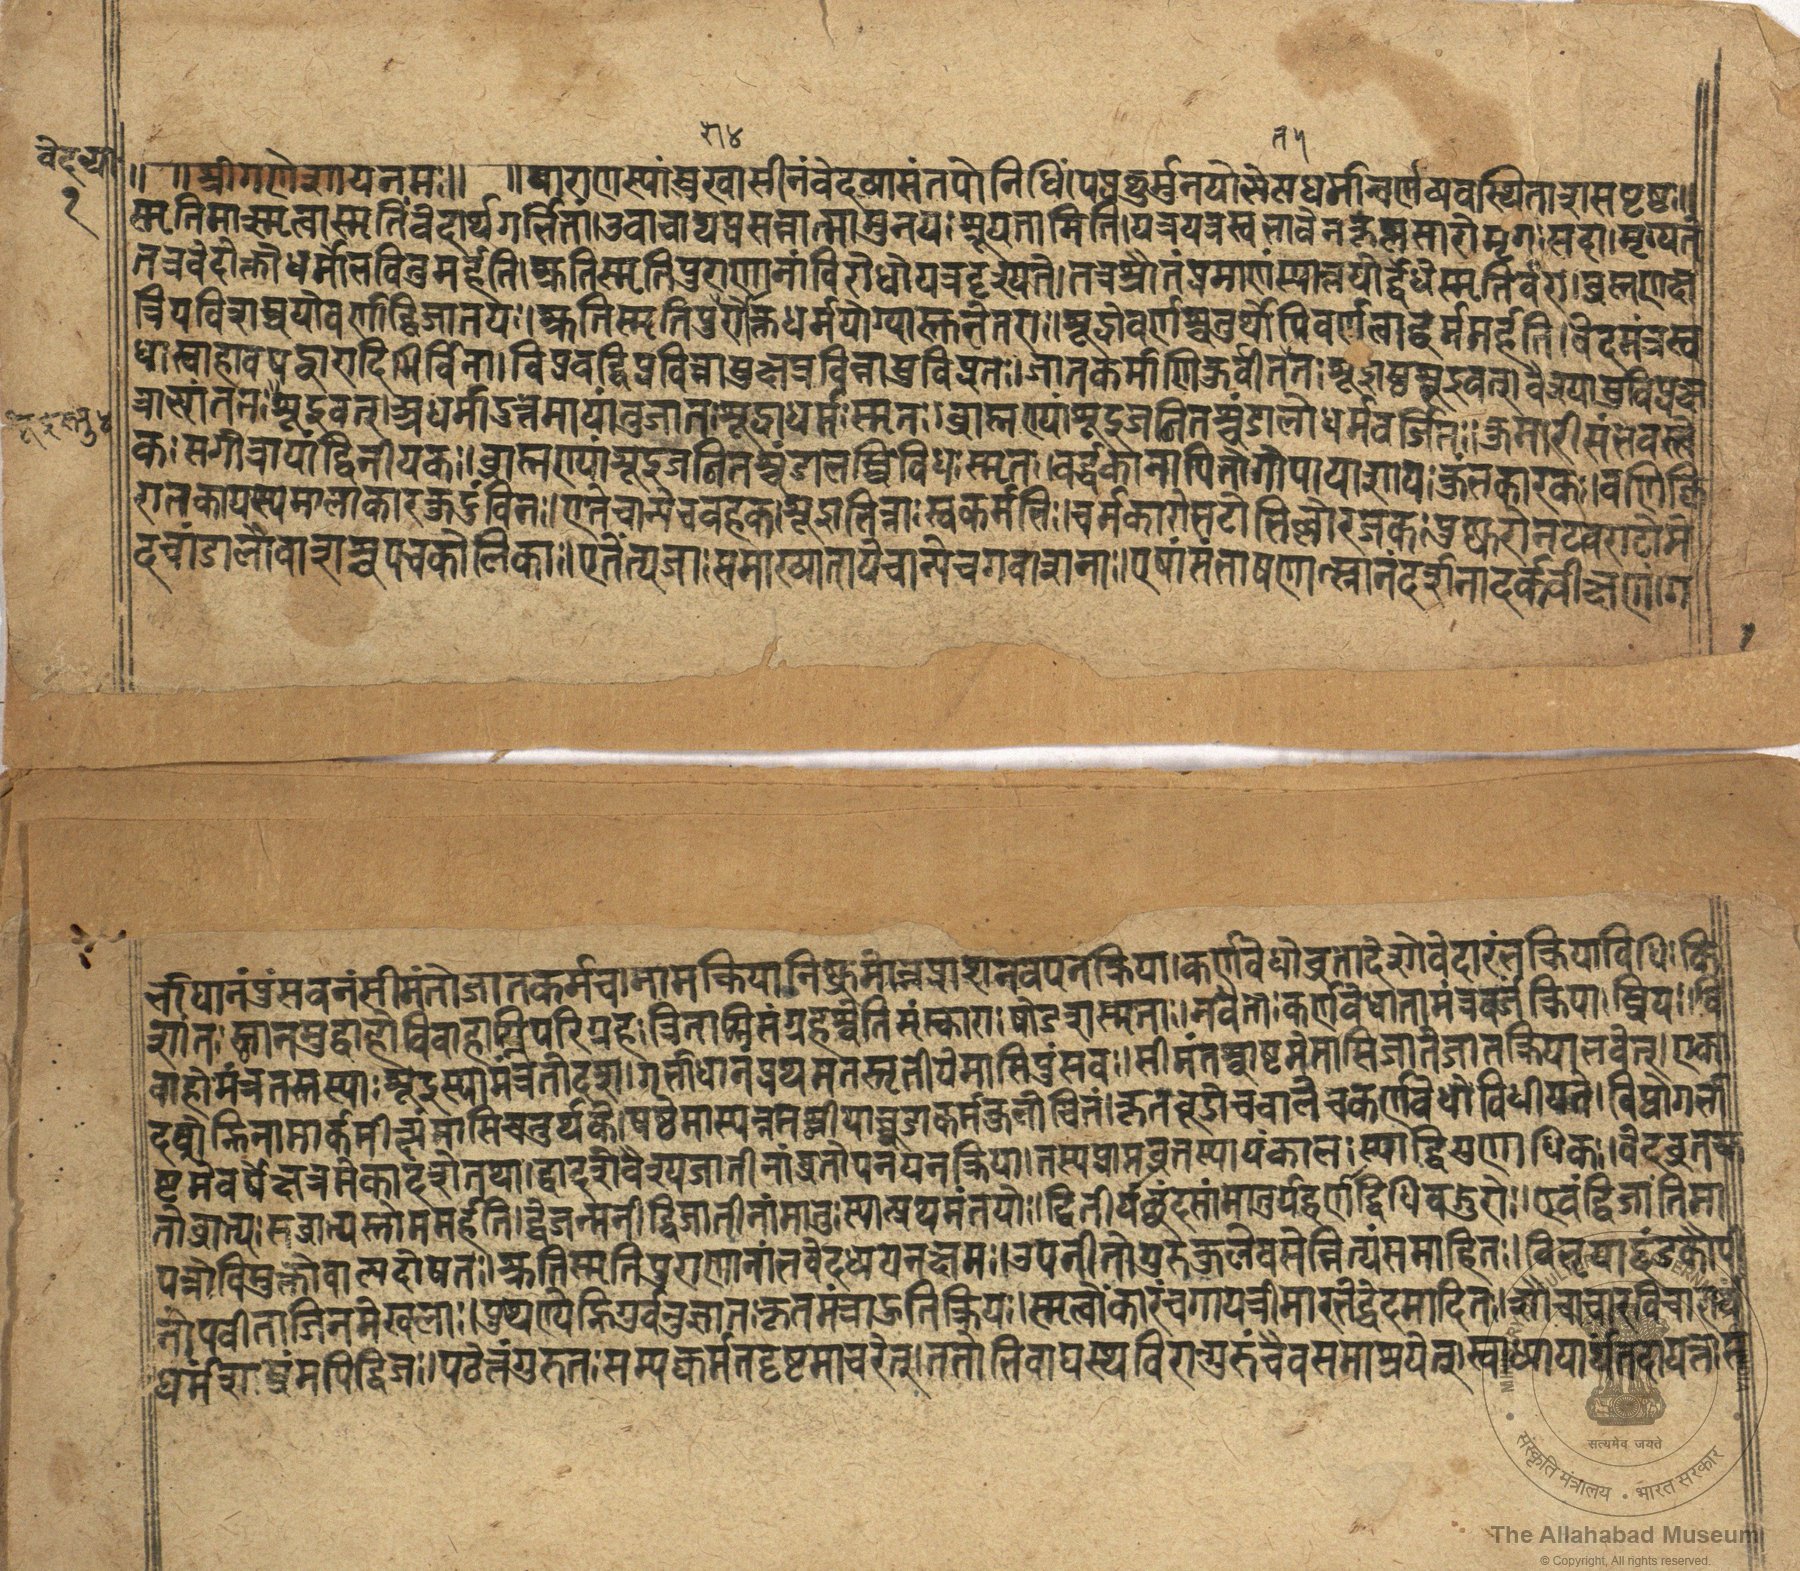 त४ त५
वेदव्या
१
॥ ॥श्रीगणेशायनमः॥ ॥वाराणस्यांसुखासीनंवेदव्यासंतपोनिधिं।पप्रछुर्मुनयोभ्येत्यधर्मान्वर्णव्यवस्थितान्।सपृष्टः
स्मृतिमान्स्मृत्वास्मृतिंवेदार्थगर्भितां।उवाचाथप्रसन्नात्मामुनयःश्रूयतामिति।यत्रयत्रस्वभावेनकृष्णसारोमृगःसदा।मृग्यते
तत्रवेदोक्तोधर्मोभवितुमर्हति।श्रुतिस्मृतिपुराणानांविरोधोयत्रदृश्यते।तत्रश्रौतंप्रमाणंस्यात्तयोर्द्वैधेस्मृतिर्वरा।ब्राह्मणक्ष
त्रियविशस्त्रयोवर्णाद्विजातयः।श्रुतिस्मृतिपुराणोक्तधर्मयोग्यास्तुनेतराः।शूद्रोवर्णश्चतुर्थोपिवर्णत्वाद्धर्ममर्हति।वेदमंत्रस्व
धास्वाहावषट्कारादिभिर्विना।विप्रवद्विप्रविन्नासुक्षत्रविन्नासुविप्रतः।जातकर्माणिकुर्वीतततःशूद्रासुशूद्रवत्।वैश्यासुविप्रक्ष
त्राभ्यांततःशूद्रवत्।अधमादुत्तमायांतुजातःशूद्राधमःस्मृतः।ब्राह्मण्यांशूद्रजनितश्चंडालोधर्मवर्जितः।कुमारीसंभवस्त्वे
कःसगोत्रायांद्वितीयकः।ब्राह्मण्यांशूद्रजनितश्चंडालस्त्रिविधःस्मृतः।वर्द्धकीनापितोगोपआशापःकुंभकारकः।वणिक्कि
रातकायस्थमालाकारकुटुंबिनः।एतेचान्येचबहवःशूद्राभिन्नाःस्वकर्मभिः।चर्मकारोभटोभिल्लोरजकःपुष्करोनटःवराटोमे
दचांडालौदाशश्वपचकोलिकाः।एतेंत्यजाःसमाख्यातायेचान्येचगवाशनाः।एषांसंभाषणात्स्नानंदर्शनादर्कवीक्षणं।ग
र्भाधानंपुंसवनंसीमंतोजातकर्मच।नामक्रियानिष्क्रमोन्नप्राशनंवपनक्रिया।कर्णवेधोव्रतादेशोवेदारंभक्रियाविधिः।के
शांतःस्नानमुद्वाहोविवाहाग्निपरिग्रहः।त्रेताग्निसंग्रहश्चेतिसंस्काराःषोडशस्मृताः।नवैताःकर्णवेधांतामंत्रवर्जंक्रियाःस्त्रियः।वि
वाहोमंत्रतस्तस्याःशूद्रस्यामंत्रतोदश।गर्भाधानंप्रथमतस्तृतीयेमासिपुंसवः।सीमंतश्चाष्टमेमासिजातेजातक्रियाभवेत्।एका
दशेह्निनामार्कमीक्षेन्मासिचतुर्थके।षष्ठेमास्यन्नमश्नीयाच्चूडाकर्मकुलोचितं।कृतचूडेचबालेचकर्णवेधोविधीयते।विप्रोगर्भा
ष्टमेवर्षेक्षत्रमेकादशेतथा।द्वादशेवैश्यजातीनांव्रतोपनयनक्रिया।तस्यप्राप्तव्रतस्यायंकालःस्याद्द्विगुणाधिकः।वेदव्रतच्यु
तोव्रात्यःसव्रात्यस्तोममर्हति।द्वेजन्मनीद्विजातीनांमातुःस्यात्प्रथमंतयोः।द्वितीयंछंदसांमातुर्ग्रहणाद्विधिवद्गुरोः।एवंद्विजातिमा
पन्नोविमुक्तोवात्यदोषतः।श्रुतिस्मृतिपुराणानांभवेदध्ययनक्षमः।उपनीतोगुरुकुलेवसेन्नित्यंसमाहितः।बिभृयाद्दंडकौपी
नोपवीताजिनमेखलाः।पुण्येह्निगुर्वनुज्ञातःकृतमंत्राहुतिक्रियः।स्मृत्वोंकारंचगायत्रीमारभेद्वेदमादितः।शौचाचारविचारार्थं
धर्मशास्त्रमपिद्विजः।पठेतगुरुतःसम्यक्कर्मतद्दृष्टमाचरेत्।ततोभिवाद्यस्थविरान्गुरुंचैवसमाश्रयेत्।स्वाध्यायार्थंतदायत्तःस
सत्यमेव जयते
संस्कृति मंत्रालय • भारत सरकार
The Allahabad Museum
© Copyright, All rights reserved.